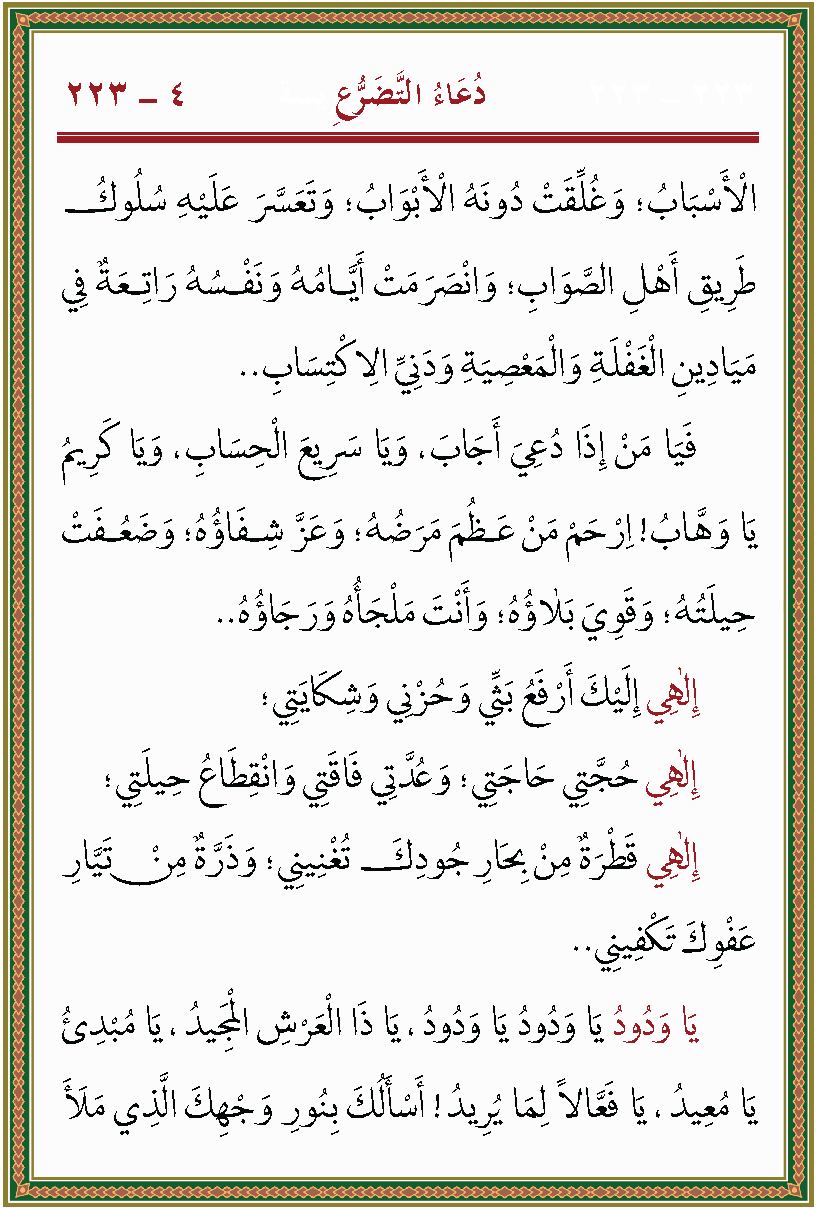 دُعَاءُ التَّضَرُّعِ ٤ – ٢٢٣
الْأَسْبَابُ؛ وَغُلِّقَتْ دُونَهُ الْأَبْوَابُ؛ وَتَعَسَّرَ عَلَيْهِ سُلُوكُ
طَرِيقِ أَهْلِ الصَّوَابِ؛ وَانْصَرَمَتْ أَيَّامُهُ وَنَفْسُهُ رَاتِعَةٌ فِي
مَيَادِينِ الْغَفْلَةِ وَالْمَعْصِيَةِ وَدَنِيِّ الِاكْتِسَابِ..
فَيَا مَنْ إِذَا دُعِيَ أَجَابَ، وَيَا سَرِيعَ الْحِسَابِ، وَيَا كَرِيمُ
يَا وَهَّابُ! اِرْحَمْ مَنْ عَظُمَ مَرَضُهُ؛ وَعَزَّ شِفَاؤُهُ؛ وَضَعُفَتْ
حِيلَتُهُ؛ وَقَوِيَ بَلَاؤُهُ؛ وَأَنْتَ مَلْجَأُهُ وَرَجَاؤُهُ..
إِلٰهِي إِلَيْكَ أَرْفَعُ بَثِّي وَحُزْنِي وَشِكَايَتِي؛
إِلٰهِي حُجَّتِي حَاجَتِي؛ وَعُدَّتِي فَاقَتِي وَانْقِطَاعُ حِيلَتِي؛
إِلٰهِي قَطْرَةٌ مِنْ بِحَارِ جُودِكَ تُغْنِينِي؛ وَذَرَّةٌ مِنْ تَيَّارِ
عَفْوِكَ تَكْفِينِي..
يَا وَدُودُ يَا وَدُودُ يَا وَدُودُ، يَا ذَا الْعَرْشِ الْمَجِيدُ، يَا مُبْدِئُ
يَا مُعِيدُ، يَا فَعَّالاً لِمَا يُرِيدُ! أَسْأَلُكَ بِنُورِ وَجْهِكَ الَّذِي مَلَأَ